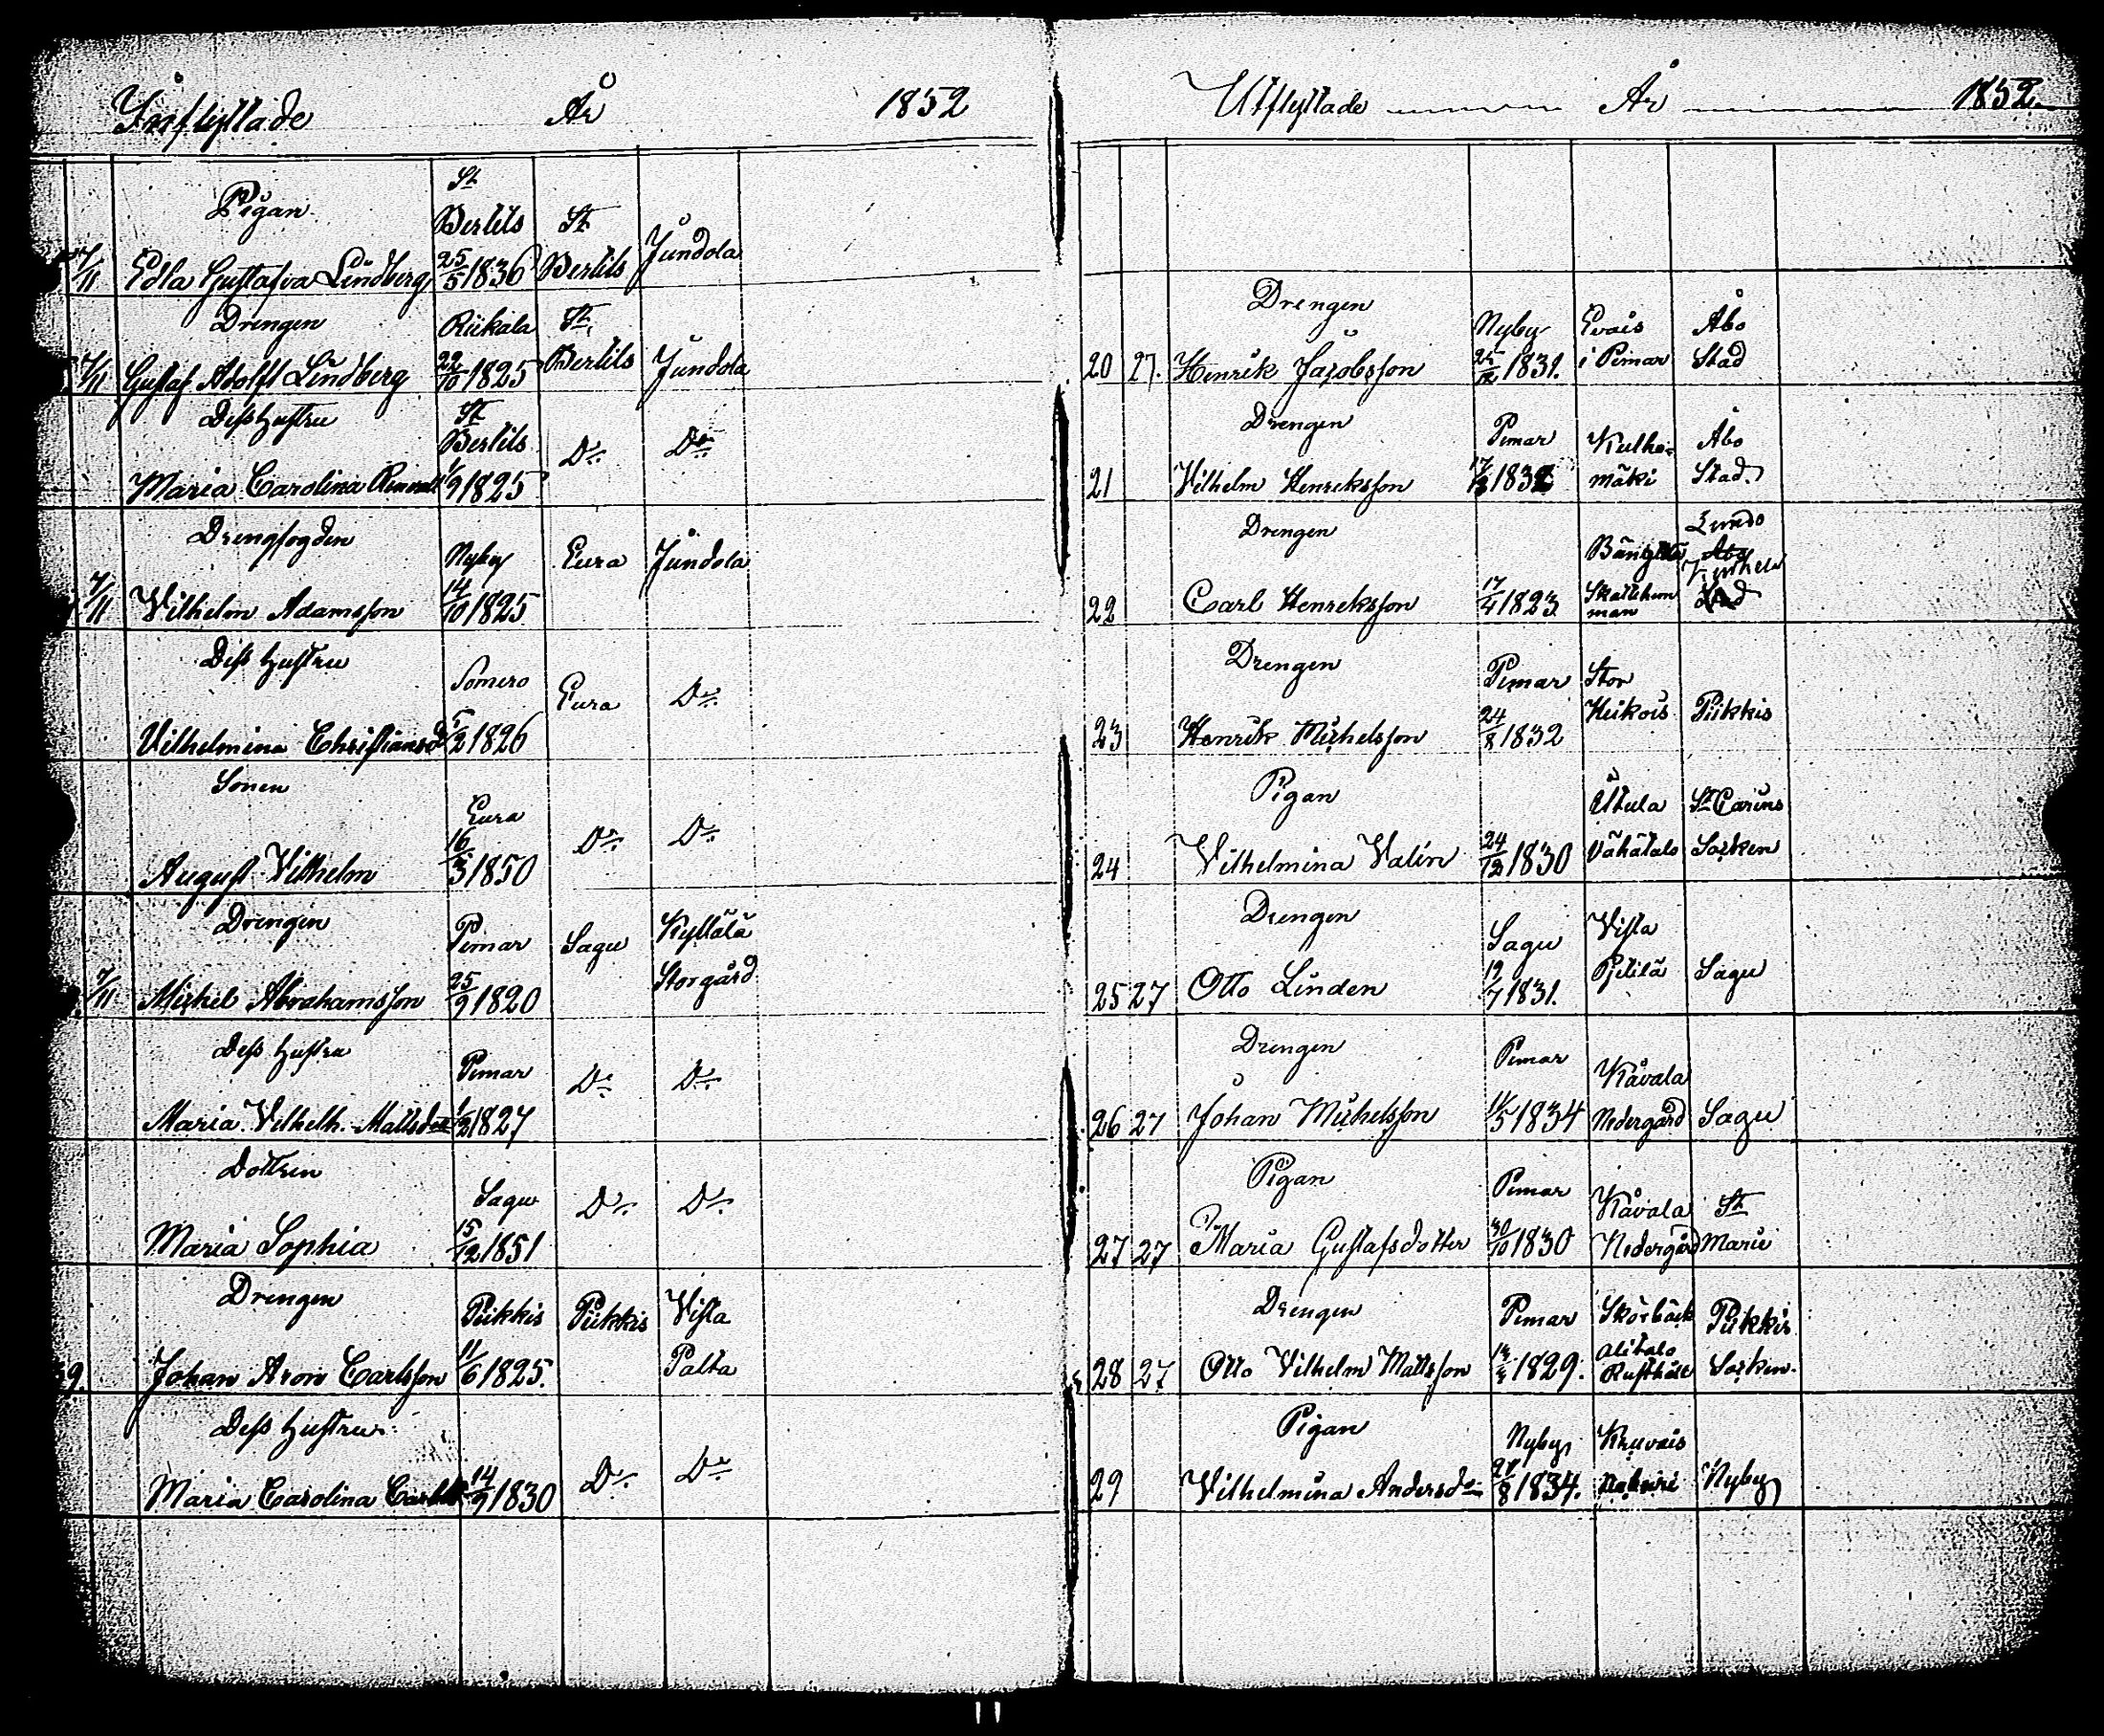 Inflyttade År 1852
Pigan St Bertils St Bertils Jundola
7/11 Edla Gustafva Lindberg 25/5 1836
Drengen Riikala St Bertils Jundola
7/11 Gustaf Adolf Lindberg 22/10 1825
Dess hustru St Bertils Do Do
Maria Carolina 1/9 1825
Drengfogden Nyby Eura Jundola
7/11 Vilhelm Adamsson 14/10 1825
Dess hustru Somero Eura Do
Vilhelmina Christiansd 5/2 1826
Sonen Eura Do Do
August Vilhelm 16/3 1850
Drengen Pemar Sagu Kyttälä Storgård
7/11 Michel Abrahamsson 25/9 1820
Dess hustru Pemar Do Do
Maria Vilhelh. Mattsdr 1/2 1827
Dottren Sagu Do Do
Maria Sophia 15/12 1851
Drengen Piikkis Piikkis Vista Palta
9. Johan Aron Carlsson 11/6 1825.
Dess hustru Do Do
Maria Carolina 14/9 1830
Utflyttade År 1852
Drengen Nyby Evais i Pemar Åbo Stad
20 27. Henrik Jacobsson 25/12 1831.
Drengen Pemar Kulhamäki Åbo Stad
21 Vilhelm Henriksson
Drengen Skattehemman Lundo
22 Carl Henriksson 17/4 1823
Drengen Pemar Stor Heikois Piikkis
23 Henrik Michelsson 24/8 1832
Pigan Attula Vähätalo St Carins Socken
24 Vilhelmina Valin 24/12 1830
Drengen Sagu Vista Pjetilä Sagu
25 27 Otto Linden 12/7 1831.
Drengen Pemar Kåvala Nedergård Sagu
26 27 Johan Michelsson 11/5 1834
Pigan Pemar Kåvala Nedergård St Marie
27 27 Maria Gustafsdotter 30/10 1830
Drengen Pemar Skörbäck Alitalo Rusthåll Piikkis Socken.
28 27 Otto Vilhelm Mattsson 1829.
Pigan Nyby Kruvais Nyby
29 Vilhelmina Andersdr 27/8 1834.